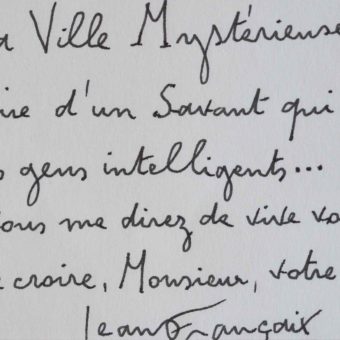 a Ville Mystérieuse
ire d'un Savant qui
s gens intelligents...
ous me direz de vive vo
e croire, Monsieur, votre
Jean Françaix